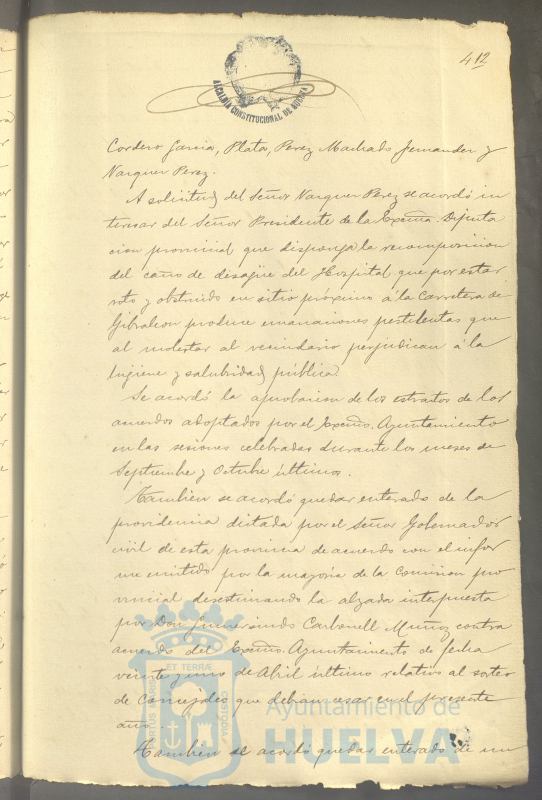 412
ALCALDIA CONSTITUCIONAL DE HUELVA
Cordero Garcia, Plata, Perez Machado, Fernandez y
Vazquez Perez.
A solicitud del Señor Vazquez Perez se acordó in
teresar del Señor Presidente de la Excma. Diputa
cion provincial que disponga la recomposicion
del caño de desagüe del Hospital que por estar
roto y obstruido en sitio próximo á la Carretera de
Gibraleon produce emanaciones pestilentes que
al molestar al vecindario perjudican á la
higiene y salubridad pública.
Se acordó la aprobacion de los estractos de los
acuerdos adoptados por el Excmo. Ayuntamiento
en las sesiones celebradas durante los meses de
Septiembre y Octubre últimos.
Tambien se acordó quedar enterado de la
providencia dictada por el Señor Gobernador
civil de esta provincia de acuerdo con el infor
me emitido por la mayoria de la Comision pro
vincial desestimando la alzada interpuesta
por Don Carbonell Muñoz contra
acuerdo del Excmo. Ayuntamiento de fecha
veinte y uno de Abril último relativo al sorteo
de Concejales que debian cesar en el presente
año.
Tambien se acordó quedar enterado de un
ET TERRÆ
PORTUS MARIS
CUSTODIA
Ayuntamiento de
HUELVA